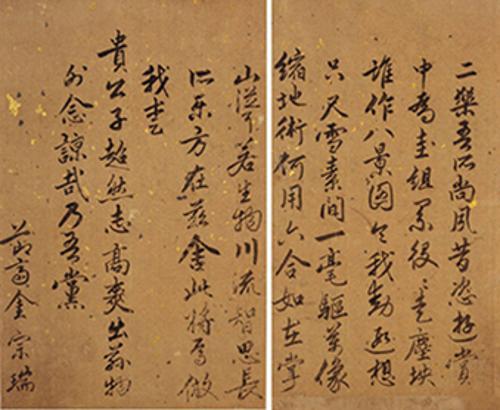 二樂吾所尚夙昔恣遊賞
中爲圭組累役走塵坱
誰作八景圖令我動遐想
只尺雪素間一毫驅萬像
縮地術何用六合如在掌
山若生物川流智思長
所樂方在茲舍此將焉倣
我
貴公子超然志高爽出物
外念諒哉乃吾黨
節齋金宗瑞